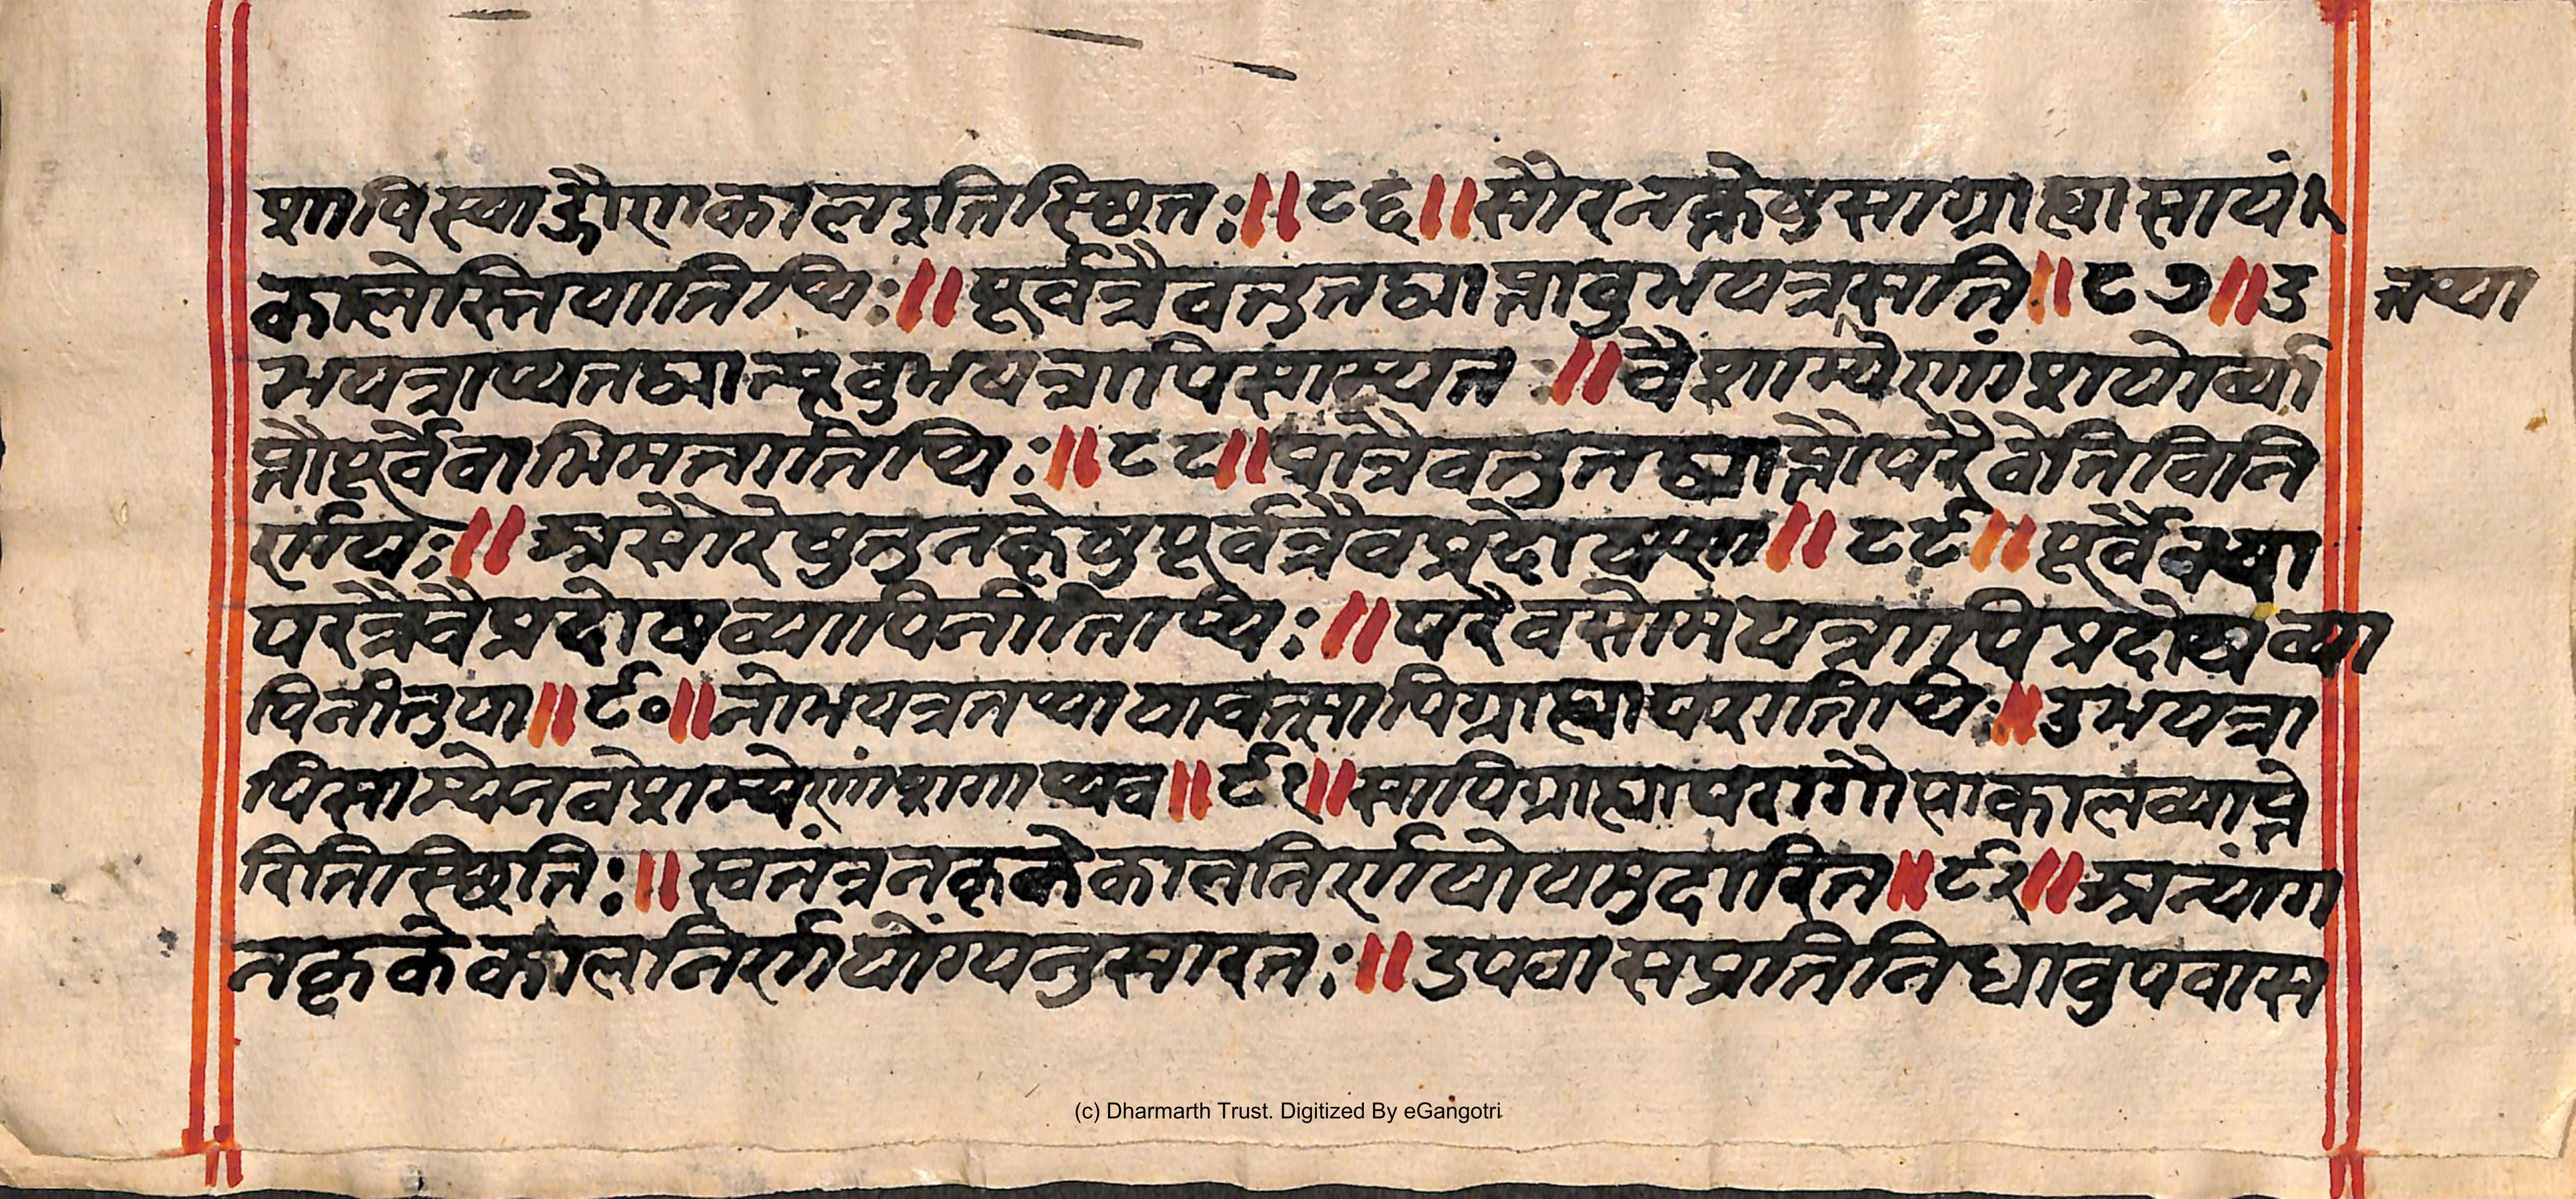 शापिस्याद्गौणकालइतिस्थितः॥८६॥सौरनक्तेषुसाग्राह्यासायं
कालेस्तियातिथिः॥पूर्वत्रैवतुतद्व्याप्तावुभयत्रसति॥८७॥उ
तथा
भयत्राप्यतद्व्याप्तावुभयत्रापिसाम्यत॥वैशाम्येणांशयोर्व्या
प्तौपूर्वैवाभिमतातिथिः॥८८॥परत्रैवतुतद्व्याप्तौपरैवेतिविनि
र्णयः॥असौरेषुतुनक्तेषुपूर्वत्रैवप्रदोषगा॥८९॥पूर्वैवस्या
परत्रैवैप्रदोषव्यापिनीतिथिः॥परैवसोभयत्रापिप्रदोषव्या
पिनीतुया॥९०॥नोभयत्रतथायावत्सापिग्राह्यापरातिथिः॥उभयत्रा
पिसाम्येनवैशाम्येणांशगाप्यव॥९१॥सापिग्राह्यापरागौणकालव्याप्ते
रितिस्थितिः॥स्वतंत्रनक्तकेकालनिर्णयोयमुदारित॥९२॥अन्यांग
नक्तकेकालनिर्णयोंग्यनुसारतः॥उपवासप्रतिनिधावुपवास
(c) Dharmarth Trust. Digitized By eGangotri